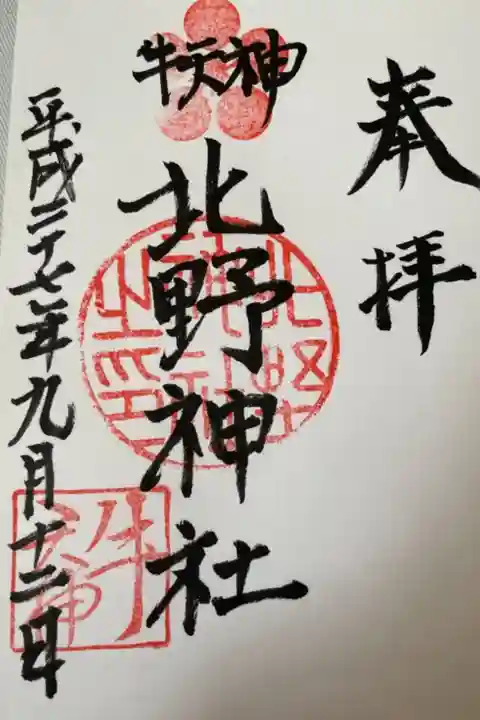 奉拝
牛天神
北野神社
北野神社之印
平成二十七年九月十二日
牛天神